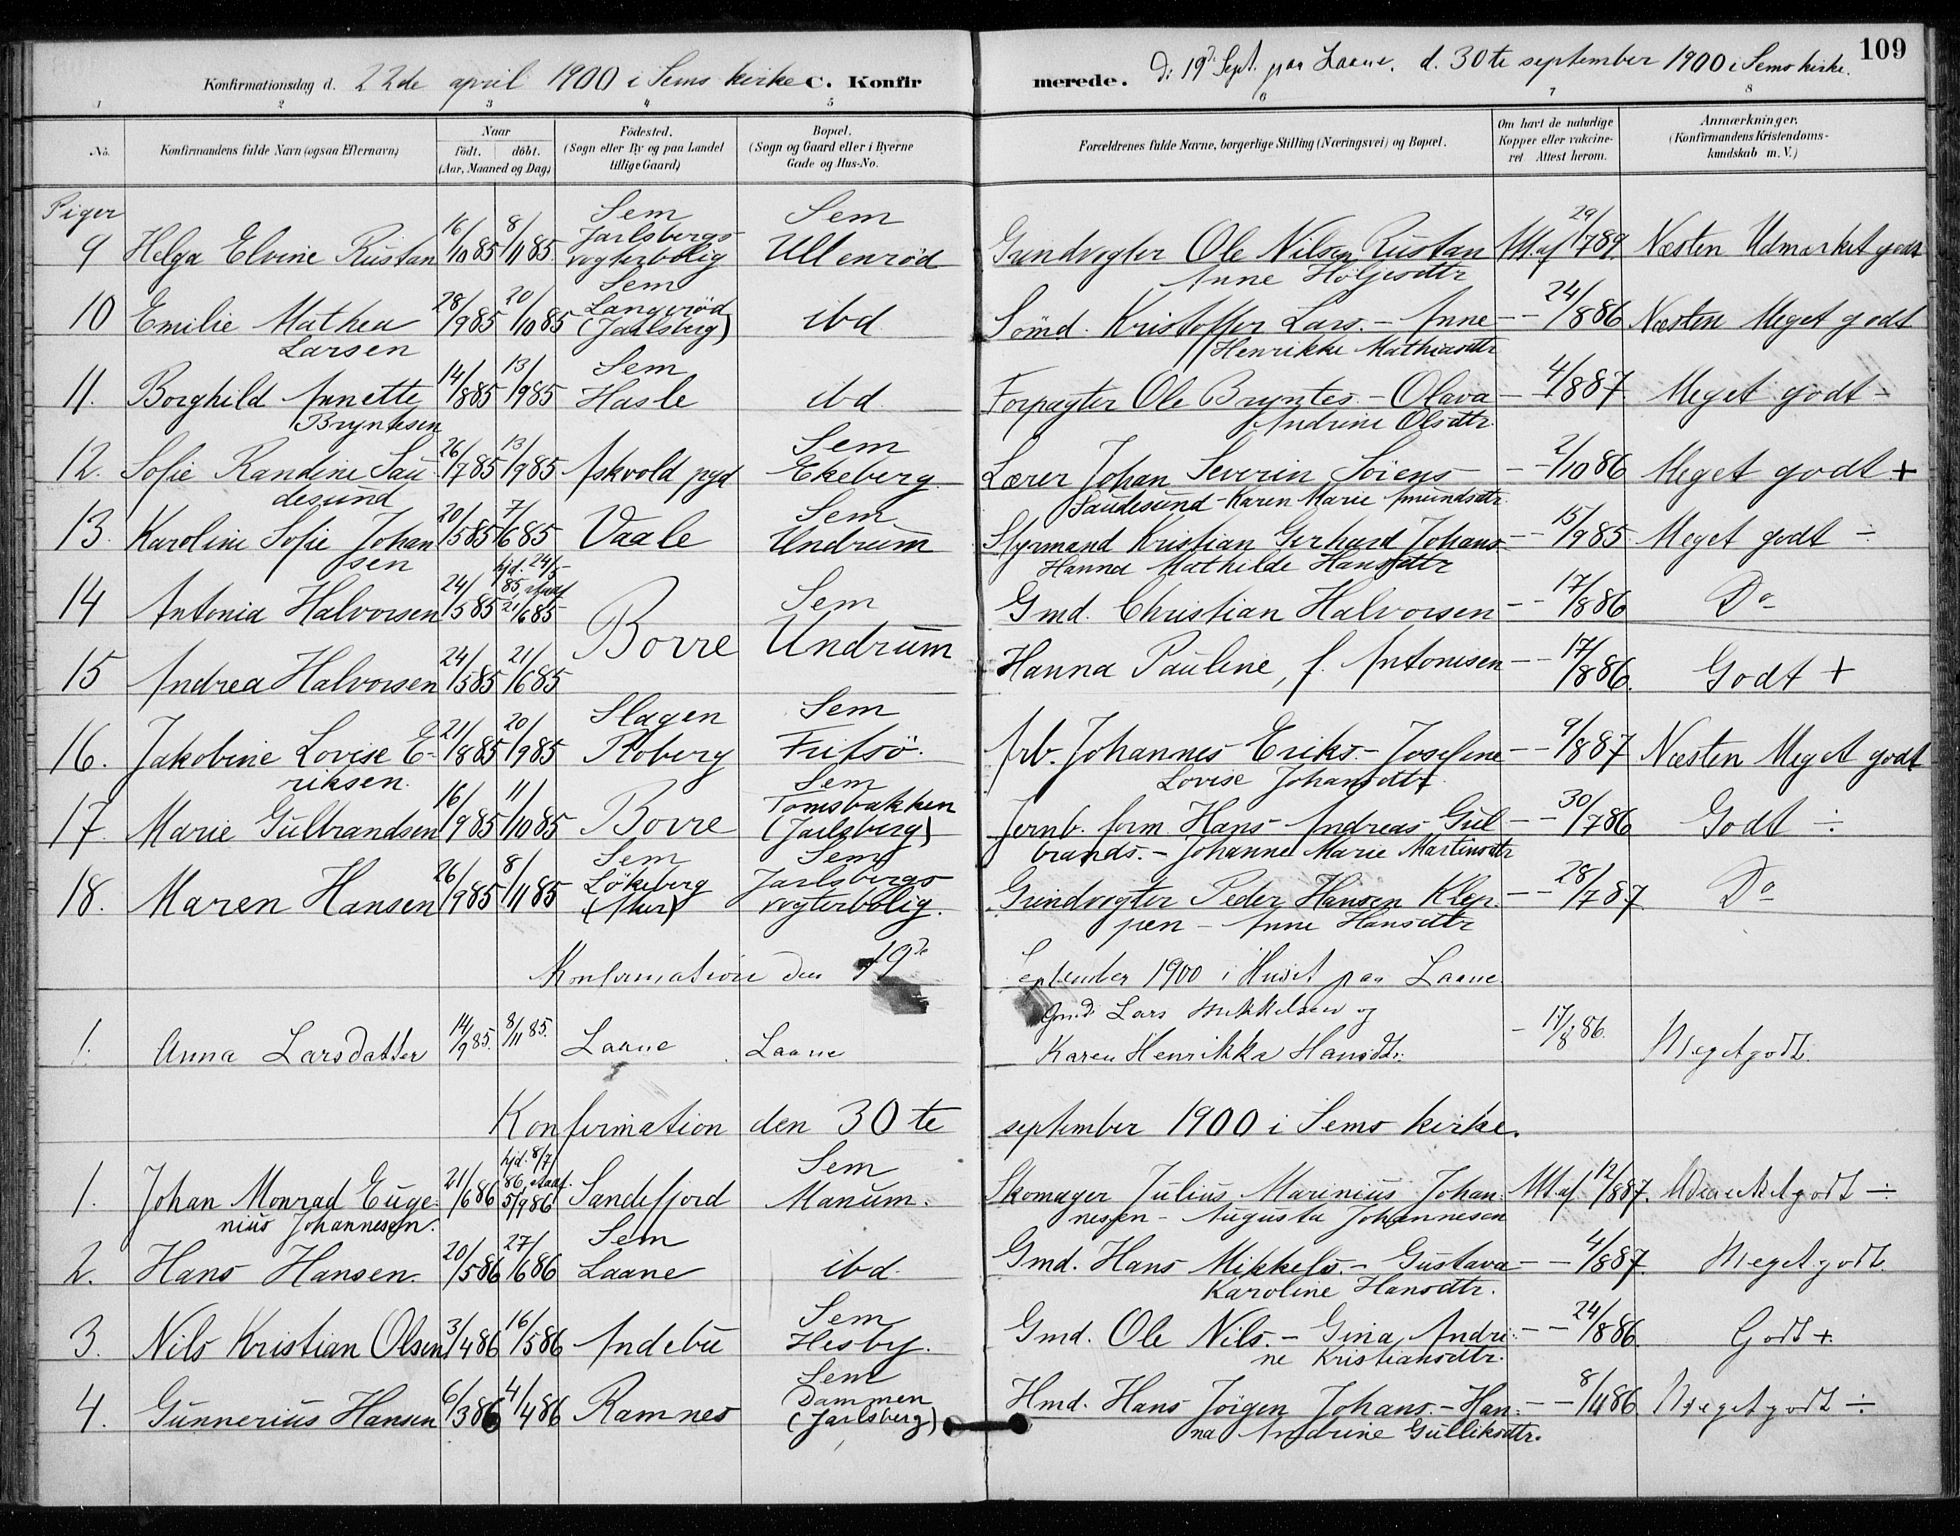 109
Konfirmationsdag d. 22de april 1900 i Sems kirke C. Konfirmerede. D: 19de Sept. paa Laane. d. 30te september 1900 i Sems kirke.
1 2 3 4 5 6 7 8
No. Konfirmandens fulde Navn (ogsaa Efternavn) Naar født. døbt. (Aar, Maaned og Dag) Fødested. (Sogn eller By og paa Landet tillige Gaard) Bopæl. (Sogn og Gaard eller i Byerne Gade og Hus-No. Forældrenes fulde Navne, borgerlige Stilling (Næringsvei) og Bopæl. Om havt de naturlige Kopper eller vakcineret Attest herom. Anmærkninger. (Konfirmandens Kristendomskundskab m. V.)
Piger
9 Helga Elvine Rustan 16/10 85 8/11 85 Sem Jarlsbergs vogterbolig Sem Ullenrød Grundvogter Ole Nilsen Rustan Att. af 29/7 89. Næsten Udmærket godt
Anne Höljesdtr
10 Emilie Mathea 28/9 85 20/10 85 Sem Langeröd (Jarlsberg) ibd Sömd. Kristoffer Lars. - Anne - - 24/8 86 Næsten Meget godt
Larsen Henrikke Mathiasdtr
11. Borghild Annette 14/8 85 13/9 85 Sem Hasle ibd. Forpagter Ole Bryntes. - Olava - - 4/8 87. Meget godt -
Bryntesen Andrine Olsdtr.
12. Sofie Randine Sau- 26/7 85 13/9 85 Askvold pgd Sem Ekeberg. Lærer Johan Severin Soiens - - 2/10 86 Meget godt +
desund Saudesund - Karen Marie Amundsdtr.
13. Karoline Sofie Johan 20/5 85 7/6 85 Vaale Sem Undrum Styrmand Kristian Gerhard Johans - - 15/9 85 Meget godt ÷
sen Hanna Mathilde Hansdtr
14 Antonia Halvorsen 24/5 85 hjd. 24/5 85, stadf. 21/6 85 Borre Sem Undrum Gmd. Christian Halvorsen - - 17/8 86 Do
15 Andrea Halvorsen 24/5 85 21/6 85 Hanna Pauline, f. Antonisen - - 17/8 86. Godt +
16. Jakobine Lovise E- 21/8 85 20/9 85 Slagen Roberg Sem Fritsö. Arb. Johannes Eriks. - Josefine - - 9/8 87 Næsten Meget godt
riksen. Lovise Johansdtr.
17. Marie Gulbrandsen 16/9 85 11/10 85 Borre Sem Tomsbakken (Jarlsberg) Jernb. form. Hans Andreas Gul - - 30/7 86 Godt ÷
brands. - Johanne Marie Martinsdtr
18. Maren Hansen 26/9 85 8/11 85 Sem Lökeberg (Aker) Sem Jarlsbergs vogterbolig. Grindvogter Peder Hansen Klep- - - 28/7 87. Do
pen - Anne Hansdtr
Konfirmation den 19de September 1900 i Huset paa Laane.
1. Anna Larsdatter 14/9 85. 8/11 85. Laane Laane Gmd. Lars Mikkelsen og - 17/8 86. Meget godt.
Karen Henrikke Hansdtr.
Konfirmation den 30te september 1900 i Sems kirke.
1. Johan Monrad Euge- 21/6 86 hjd. 8/7 86, stadf. 5/9 86 Sandefjord Sem Manum. Skomager Julius Marinius Johan- Att. af 12/8 87. Udmærket godt ÷
nius Johannesen. nessen - Augusta Johannesen
2. Hans Hansen. 20/5 86 27/6 86 Sem Laane ibd. Gmd. Hans Mikkels. - Gustava - - 4/8 87. Meget godt.
Karoline Hansdtr.
3. Nils Kristian Olsen 3/4 86 16/5 86 Andebu Sem Hesby. Gmd. Ole Nils. - Gina Andri - - 24/8 86. Godt +
ne Kristiansdtr.
4. Gunnerius Hansen 6/3 86 4/4 86 Ramnes Sem Dammen (Jarlsberg) Hmd. Hans Jörgen Johans. - Han- - - 8/4 86. Meget godt ÷
na Andrine Gulliksdtr.